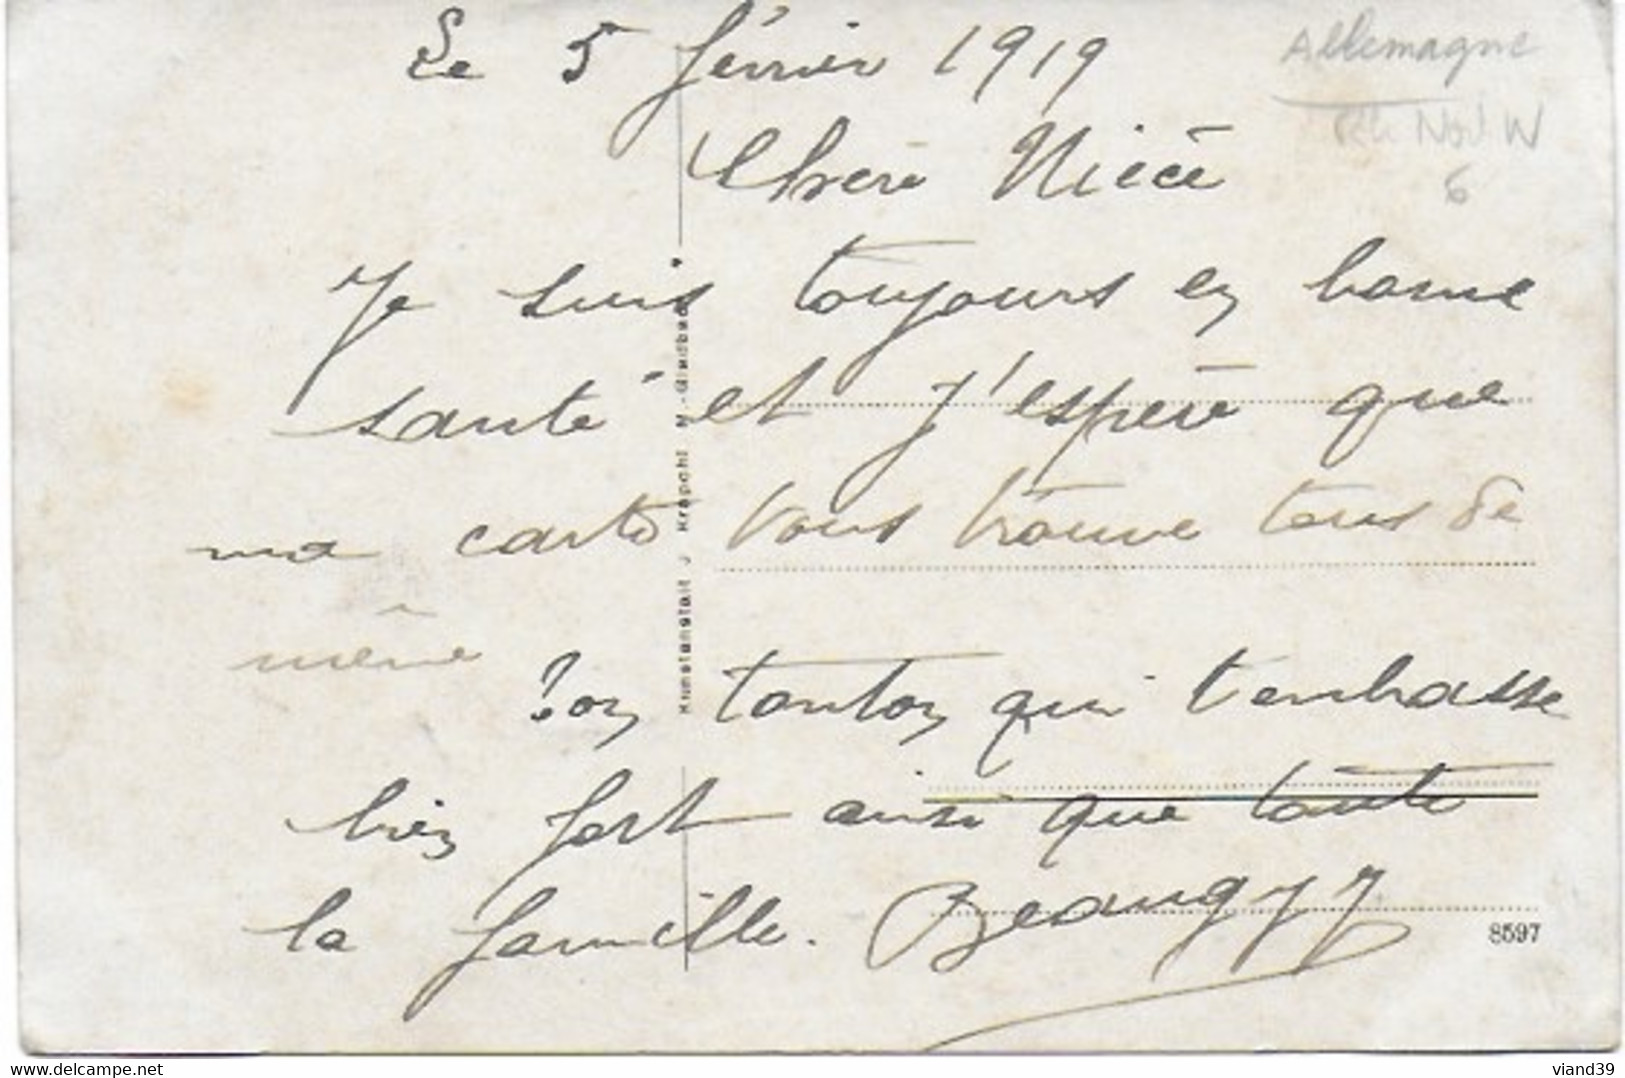 Le 5 février 1919
Allemagne
Nord W
6
Chère Nièce
Je suis toujours en bonne
santé et j'espère que
ma carte vous trouve tous de
même
Ton tonton qui t'embrasse
bien fort ainsi que toute
la famille.
Kunstanstalt J Krapohl M.-Gladbach
8597
delcampe.net
viand39